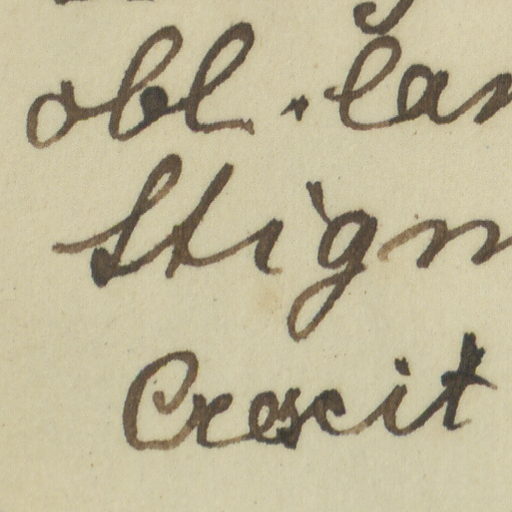 obl. lan
Stigm
Crescit